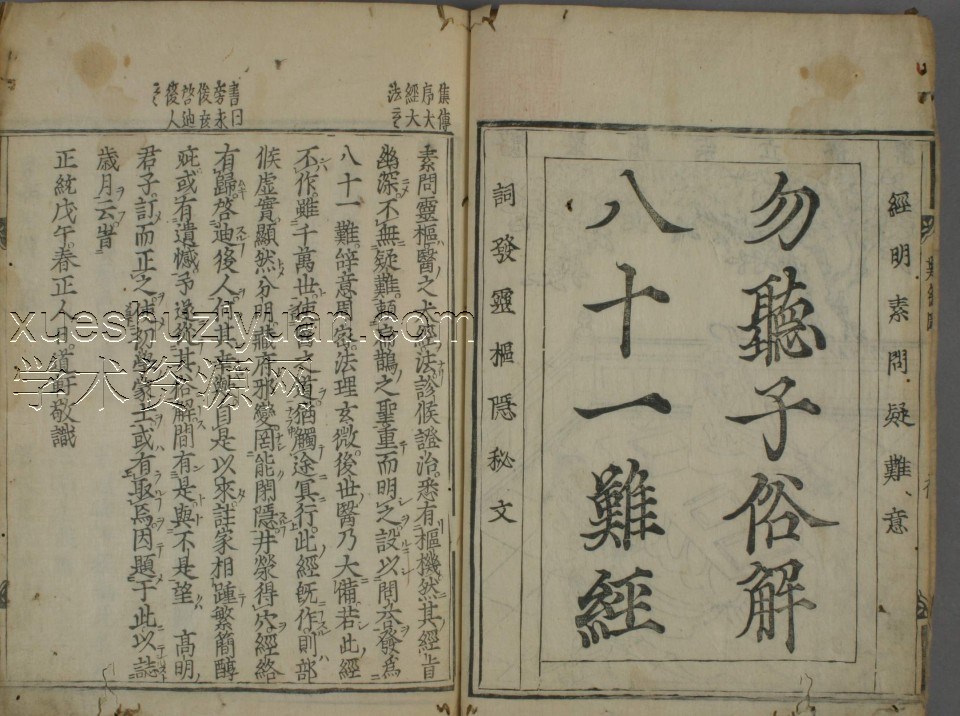 經明素問疑難意
勿聽子俗解
八十一難經
詞發靈樞隱秘文
集傳
序大
經大
法云
素問靈樞醫之大經法診候證治悉有樞機然其經旨
幽深不無疑難賴扁鵲之聖重而明之設以問答發爲
八十一難辭意周密法理玄微後世醫乃大備若此經
不作雖千萬世使醫之道猶觸途冥行此經旣作則部
候虛實顯然分明臟府邪變罔能閉隱井滎得穴經絡
有歸啓迪後人何其幸歟自是以來註家相踵繁簡醇
疵或有遺憾予遂從其俗解間有是與不是望 高明
君子訂而正之使初學蒙士或有取焉因題于此以誌
歲月云旹
正統戊午春正人日道軒敬識
書曰
旁求
俊彥
啓迪
後人
云云
xueshuziyuan.com
学术资源网